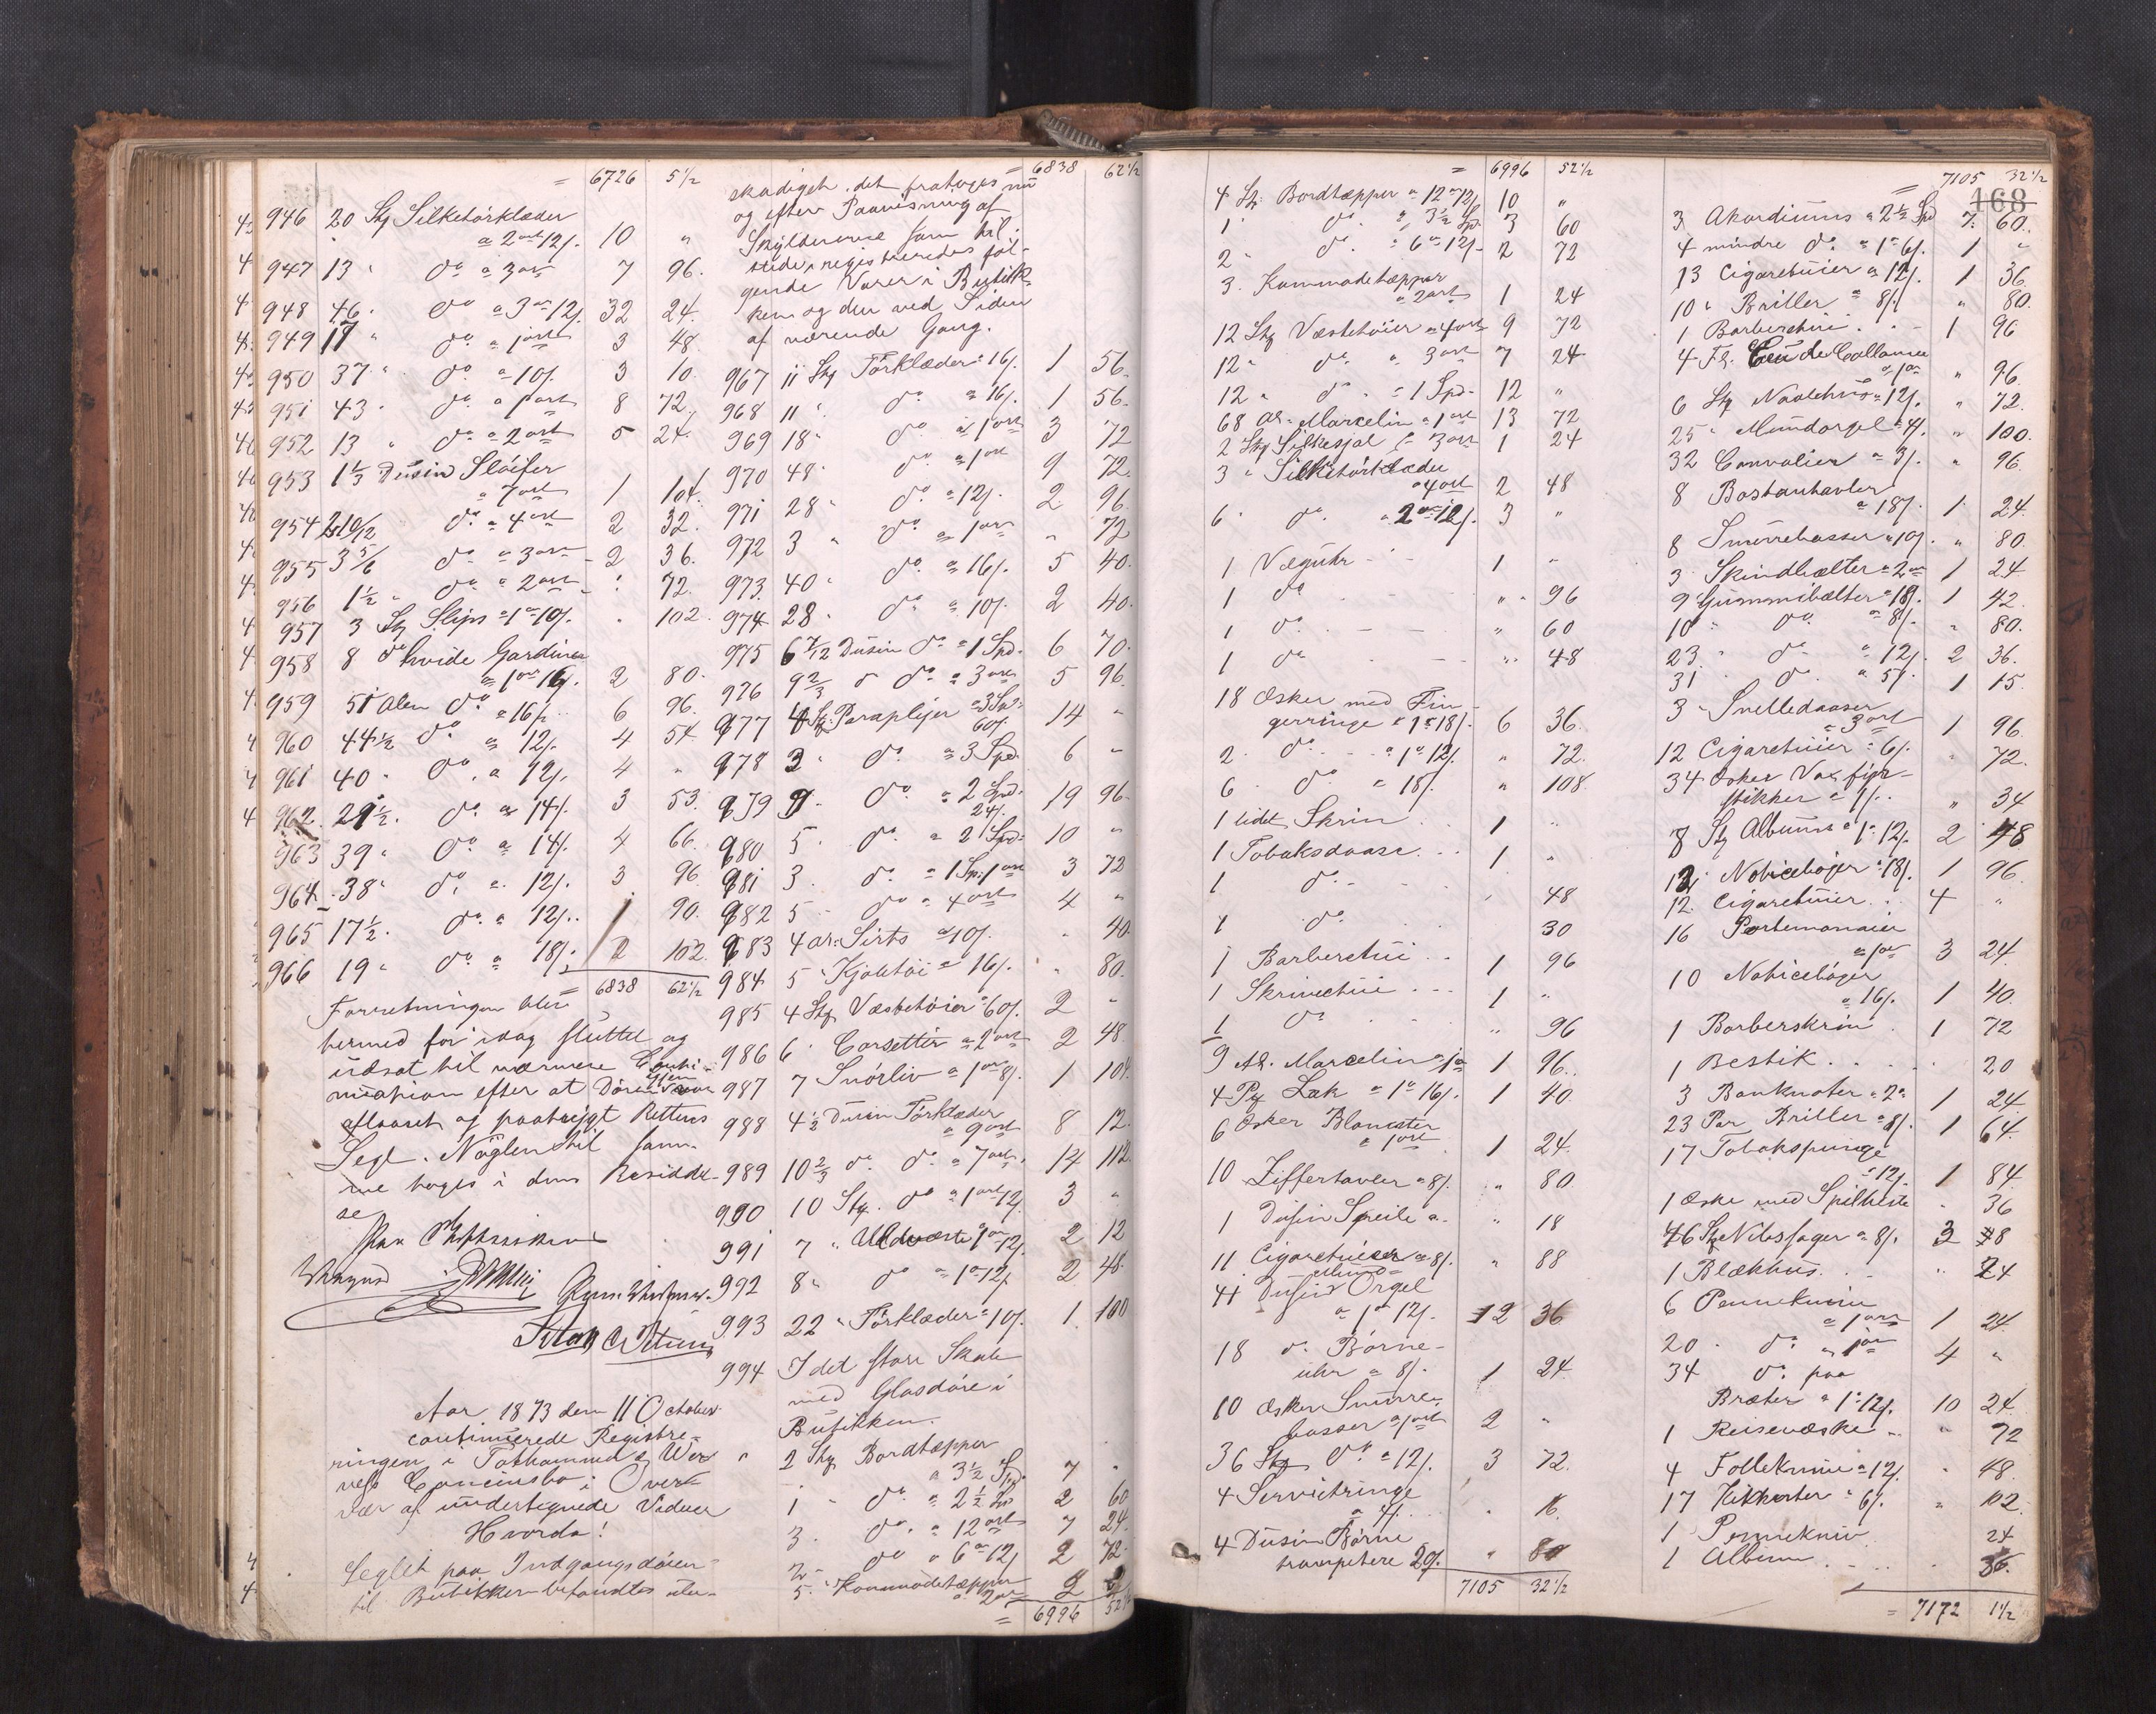 = 6726 5 1/2
946 20 Stk Silketörklæder
a 2 ort 12 s. 10 "
947 13 " do a 3 ort 7 96.
948 46 " do a 3 ort 12 s. 32 24.
949 17 " do a 1 ort 3 48.
950 37 " do a 10 s. 3 10.
951 43 " do a 1 ort 8 72.
952 13 " do a 2 ort 5 24.
953 1 1/3 Dusin Slöifer
a 7 ort 1 104.
954 2 10/12 do a 4 ort 2 32.
955 3 5/6 do a 3 ort 2 36.
956 1 1/2 " do a 2 ort " 72.
957 3 Stk Slips a 1 ort 10 s. " 102.
958 8 do hvide Gardiner
a 1 ort 16 s. 2 80.
959 51 Alen do a 16 s. 6 96.
960 44 1/2 do a 12 s. 4 54.
961 40 " do a 12 s. 4 "
962. 29 1/2. do a 14 s. 3 53.
963 39 " do a 14 s. 4 66.
964. 38 " do a 12 s. 3 96.
965 17 1/2. do a 12 s. 1 90.
966 19 " do a 18 s. 2 102.
= 6838 62 1/2
Forretningen blev
hermed for idag sluttet og
udsat til nærmere Conti-
nuation efter at Dören var
aflaaset og paatrykt Rettens
Segl. Nöglen til sam-
me tages i dens Residen-
se
Aar 1873 den 11 October
continuerede Registre-
ringen i
Concursbo i Over-
vær af undertegnede Vidner
Hvorda!
Seglet paa Indgangsdören
til Butikken befandtes ube-
= 6838 62 1/2
skadiget. det fratoges nu
og efter Paavisning af
Skyldneren som til-
stede, registreredes föl-
gende Varer i Butik-
ken og den ved Siden
af værende Gang.
967 11 Stk Törklæder a 16 s. 1 56.
968 11 " do a 16 s. 1 56.
969 18 " do a 1 ort 3 72
970 48 " do a 1 ort 9 72.
971 28 " do a 12 s. 2 96.
972 3 " do a 1 ort " 72
973. 40 " do a 16 s. 5 40.
974 28 " do a 10 s. 2 40.
975 6 7/12 Dusin do a 1 Spd. 6 70.
976 9 2/3 do do a 3 ort 5 96.
977 4 Stk Paraplyer a 3 Spd.
60 s. 14 "
978 2 " do a 3 Spd. 6 "
979 9 " do a 2 Spd.
24 s. 19 96.
980 5 " do a 2 Spd. 10 "
981 3 " do a 1 Sp. 1 ort 3 72
982 5 " do a 4 ort 4 "
983 4 al. Sirts a 10 s. " 40
984 5 " Kjoletöi a 16 s. " 80.
985 4 Stk Væstetöier a 60 s. 2 "
986 6 " Corsetter a 2 ort 2 48.
987 7 Snörliv a 1 ort 8 s. 1 104.
988 4 1/2 Dusin Törklæder
a 9 ort 8 12.
989 10 2/3 do do a 7 ort 14 112.
990 10 Stk. do a 1 ort 12 s. 3 "
991 7 " Uldveste 1 ort 12 s. 2 12
992 8 " do a 1 ort 12 s. 2 48.
993 22 " Törklæder a 10 s. 1 100
994 I det store Skab
med Glasdöre i
Butikken.
2 Stk Bordtæpper
a 3 1/2 Spd. 7 "
1 " do a 2 1/2 Spd 2 60
3. do. a 12 ort 7 24.
2 " do a 6 ort 12 s. 2 72.
5. " Kommodetæpper
a 2 ort 2
= 6996 52 1/2
= 6996 52 1/2
4 Stk. Bordtæpper a 12 ort 12 s. 10 "
1 do. a 3 1/2 Sp. 3 60
2 " do. a 6 ort 12 s. 2 72
3. Kommodetæpper
a 2 ort 1 24
12 Stk Væstetöier a 4 ort 9 72
12 " do. a 3 ort 7 24
12 " do. a 1 Spd. 12 "
68 al. Marcelin a 1 ort 13 72
2 Stk Silkesjal a 3 ort 1 24
3 " Silketörklæder
a 4 ort 2 48
6 " do. a 2 ort 12 s. 3 "
1 Væguhr 1 "
1 do " 96
1 do. " 60
1 do " 48
18 Æsker med Fin-
gerringe a 1 ort 18 s. 6 36.
2. do. a 1 ort 12 s. " 72.
6 do a 18 s. " 108.
1 lidet Skrin 1 "
1 Tobaksdaase 1 "
1 do. " 48
1 do. 30
1 Barberetui 1 96
1 Skriveetui 1 "
1 do " 96
9 Al. Marcelin a 1 ort 1 96.
4 Pk Lak a 1 ort 16 s. 1 40.
6 Æsker Blomster
a 1 ort 1 24.
10 Ziffertavler a 8 s. " 80.
1 Dusin Speile a " 18
11 Cigaretuier a 8 s. " 88
41 Dusin Mund Orgel
a 1 ort 12 s. 12 36
18 do. Börne-
uhr a 8 s. 1 24.
10 Æsker Snurre-
basser a 1 ort 2 "
36 Stk do a 12 s. 3 72.
4 Servietringe
a 4 s. " 16.
4 Dusin Börne
trompetere 20 s. " 80
7105 32 1/2
= 7105 32 1/2
168
3 Akordiums a 2 1/2 Spd 7. 60.
4 mindre do. a 1 ort 6 s. 1 "
13 Cigaretuier a 12 s. 1 36.
10 " Briller a 8 s. " 80.
1 Barberetui 1 96
4 Fl. Eau de Collonge
a 1 ort " 96.
6 Stk Naalehus a 12 s. " 72.
25 " Mundorgel a 4 s. " 100.
32 Convolier a 3 s. " 96.
8 Bostanhavler
a 18 s. 1 24.
8 Snurrebasser a 10 s. " 80.
3 Skindbælter a 2 ort 1 24
9 Gummibælter a 18 s. 1 42.
10 " do. a 8 s. " 80.
23 " do a 12 s. 2 36.
31 do. a 5 s. 1 15.
3 " Snelledaaser
a 3 ort 1 96.
12 Cigaretuier a 6 s. " 72.
34 Æsker Vox fyr-
stikker a 1 s. " 34
8 Stk Albums a 1 ort 12 s. 2 48
12 Noticeböger a 18 s. 1 96.
12. Cigaretuier 4 "
16 Portemonaier
a 1 ort 3 24.
10 Noticeböger
a 16 s. 1 40.
1 Barberskrin 1 72
1 Bestik 20
3 Banknoter a 2 ort 1 24
23 Par Briller a 8 s. 1 64.
17 Tobakspunge
a 12 s. 1 84
1 Æske med Spilleste " 36
46 Stk Nips sager a 8 s. 3 8
1 Blækhus " 24
6 Penneknive
a 1 ort 1 24.
20 " do. a 1 ort 4 "
34 do. paa
Bræter a 1 ort 12 s. 10 24.
1 Reisevæske " 72
4 Folleknive a 12 s. " 48.
17 Kikkerter a 6 s. " 102.
1 Pennekniv 24
1 Album 36.
= 7172 1 1/2